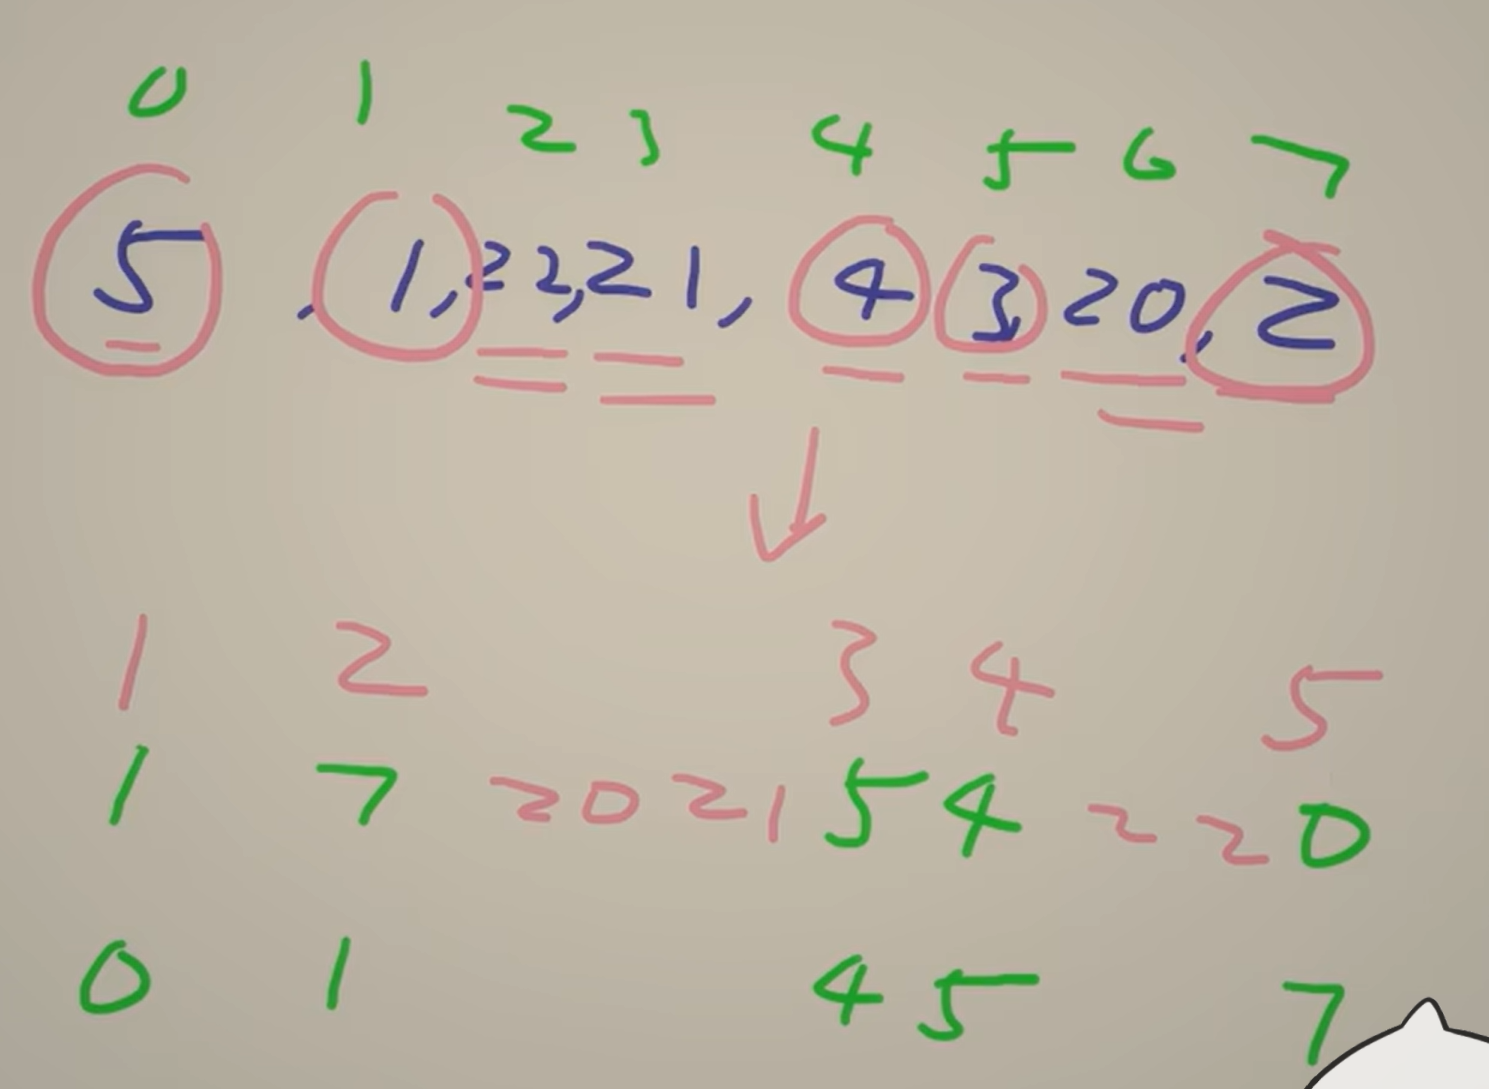 0 1 2 3 4 5 6 7
5, 1, 22, 21, 4 3, 20, 2
1 2 3 4 5
1 7 20 21 5 4 22 0
0 1 4 5 7